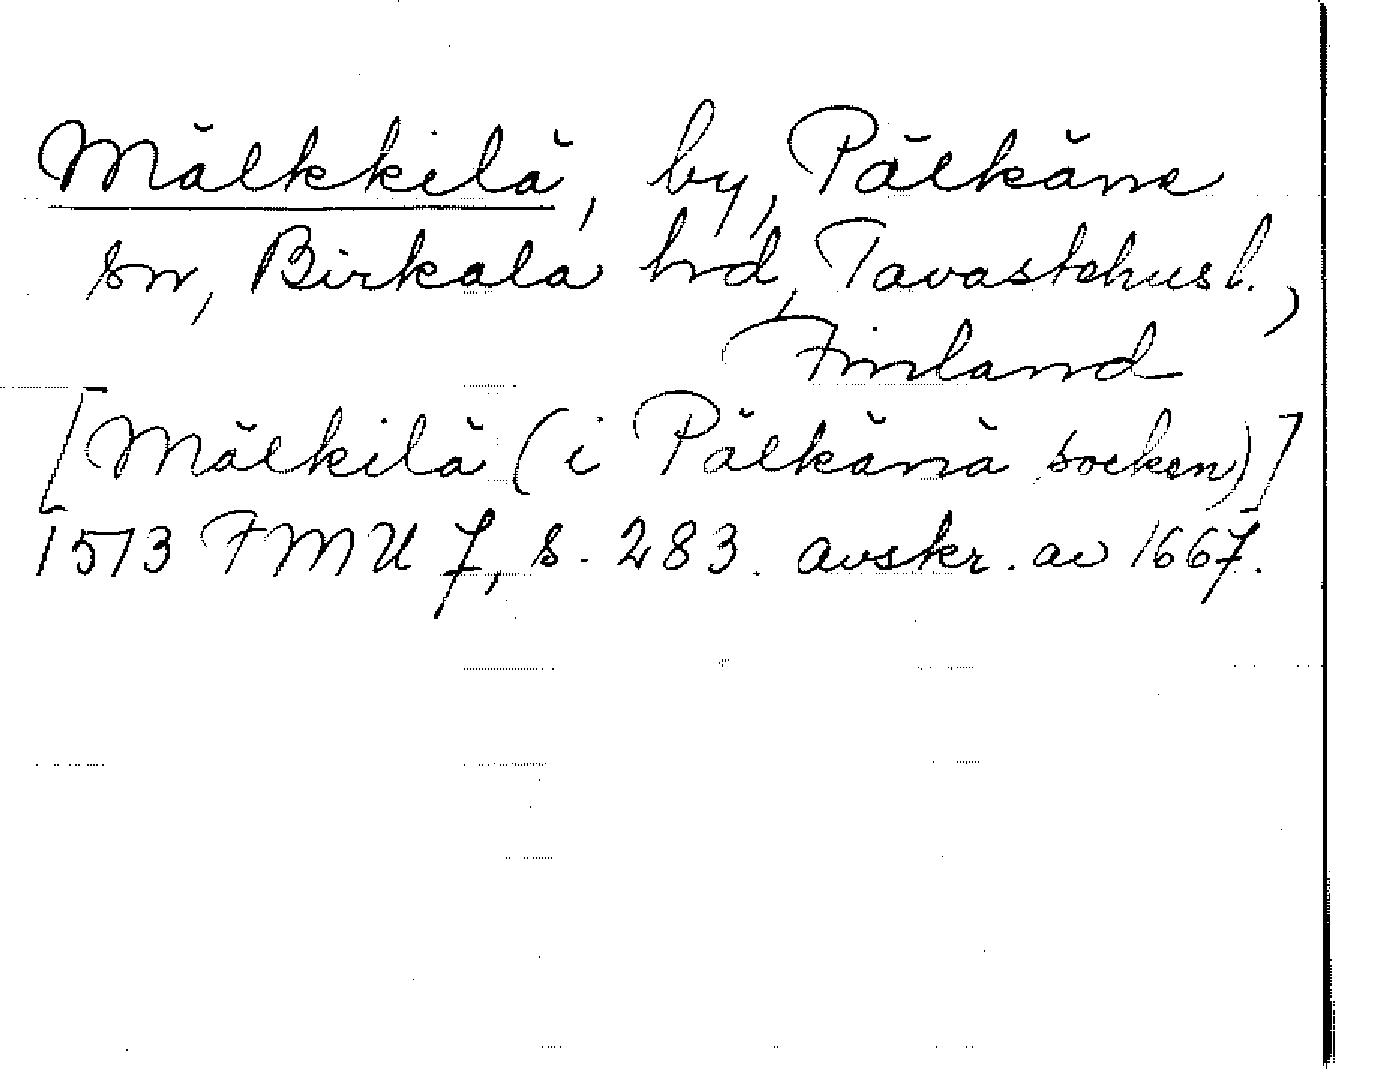 Mälkkilä, by, Pälkäne
sn, Birkala hrd, Tavastehus l.,
Finland
[Mälkilä (i Pälkänä socken)]
1513 FMU 7, s. 283. avskr. av 1667.